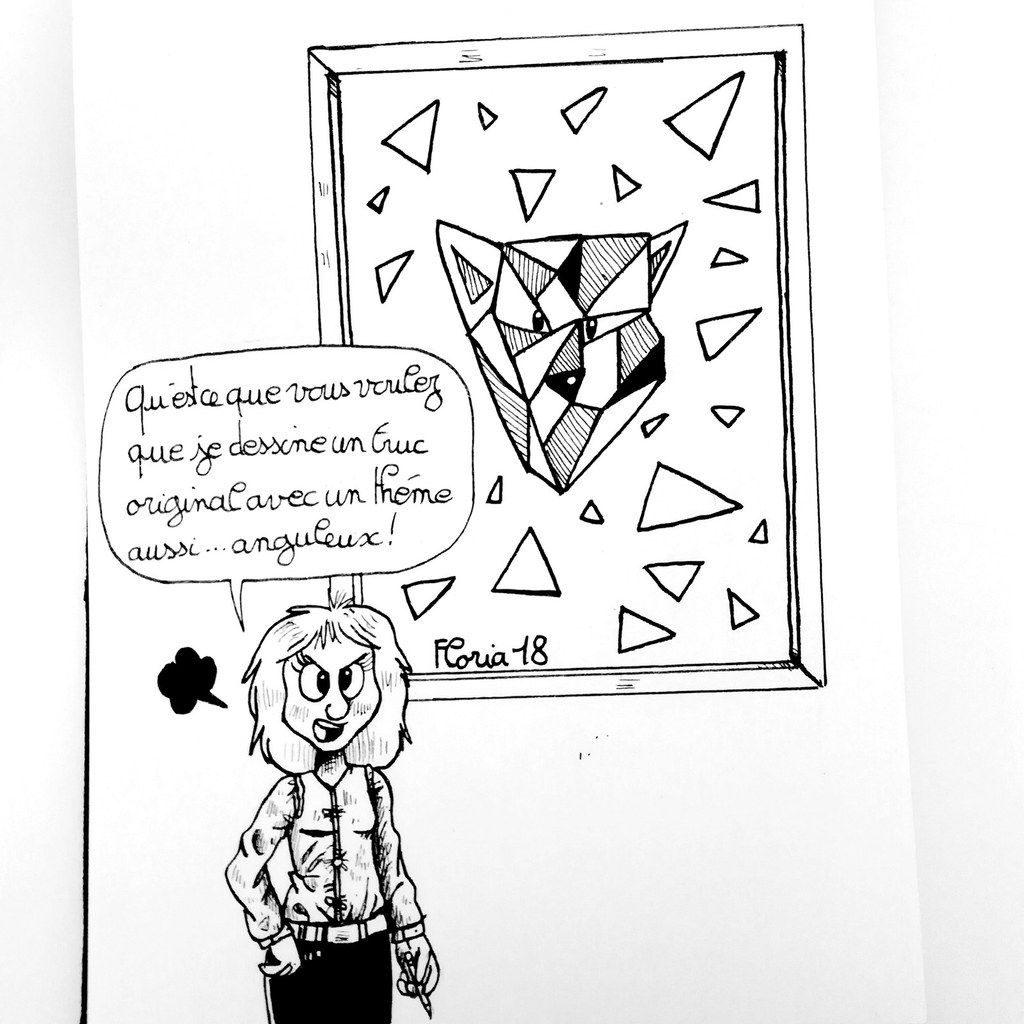 Qu'est ce que vous voulez
que je dessine un truc
original avec un thème
aussi... anguleux!
Floria 18